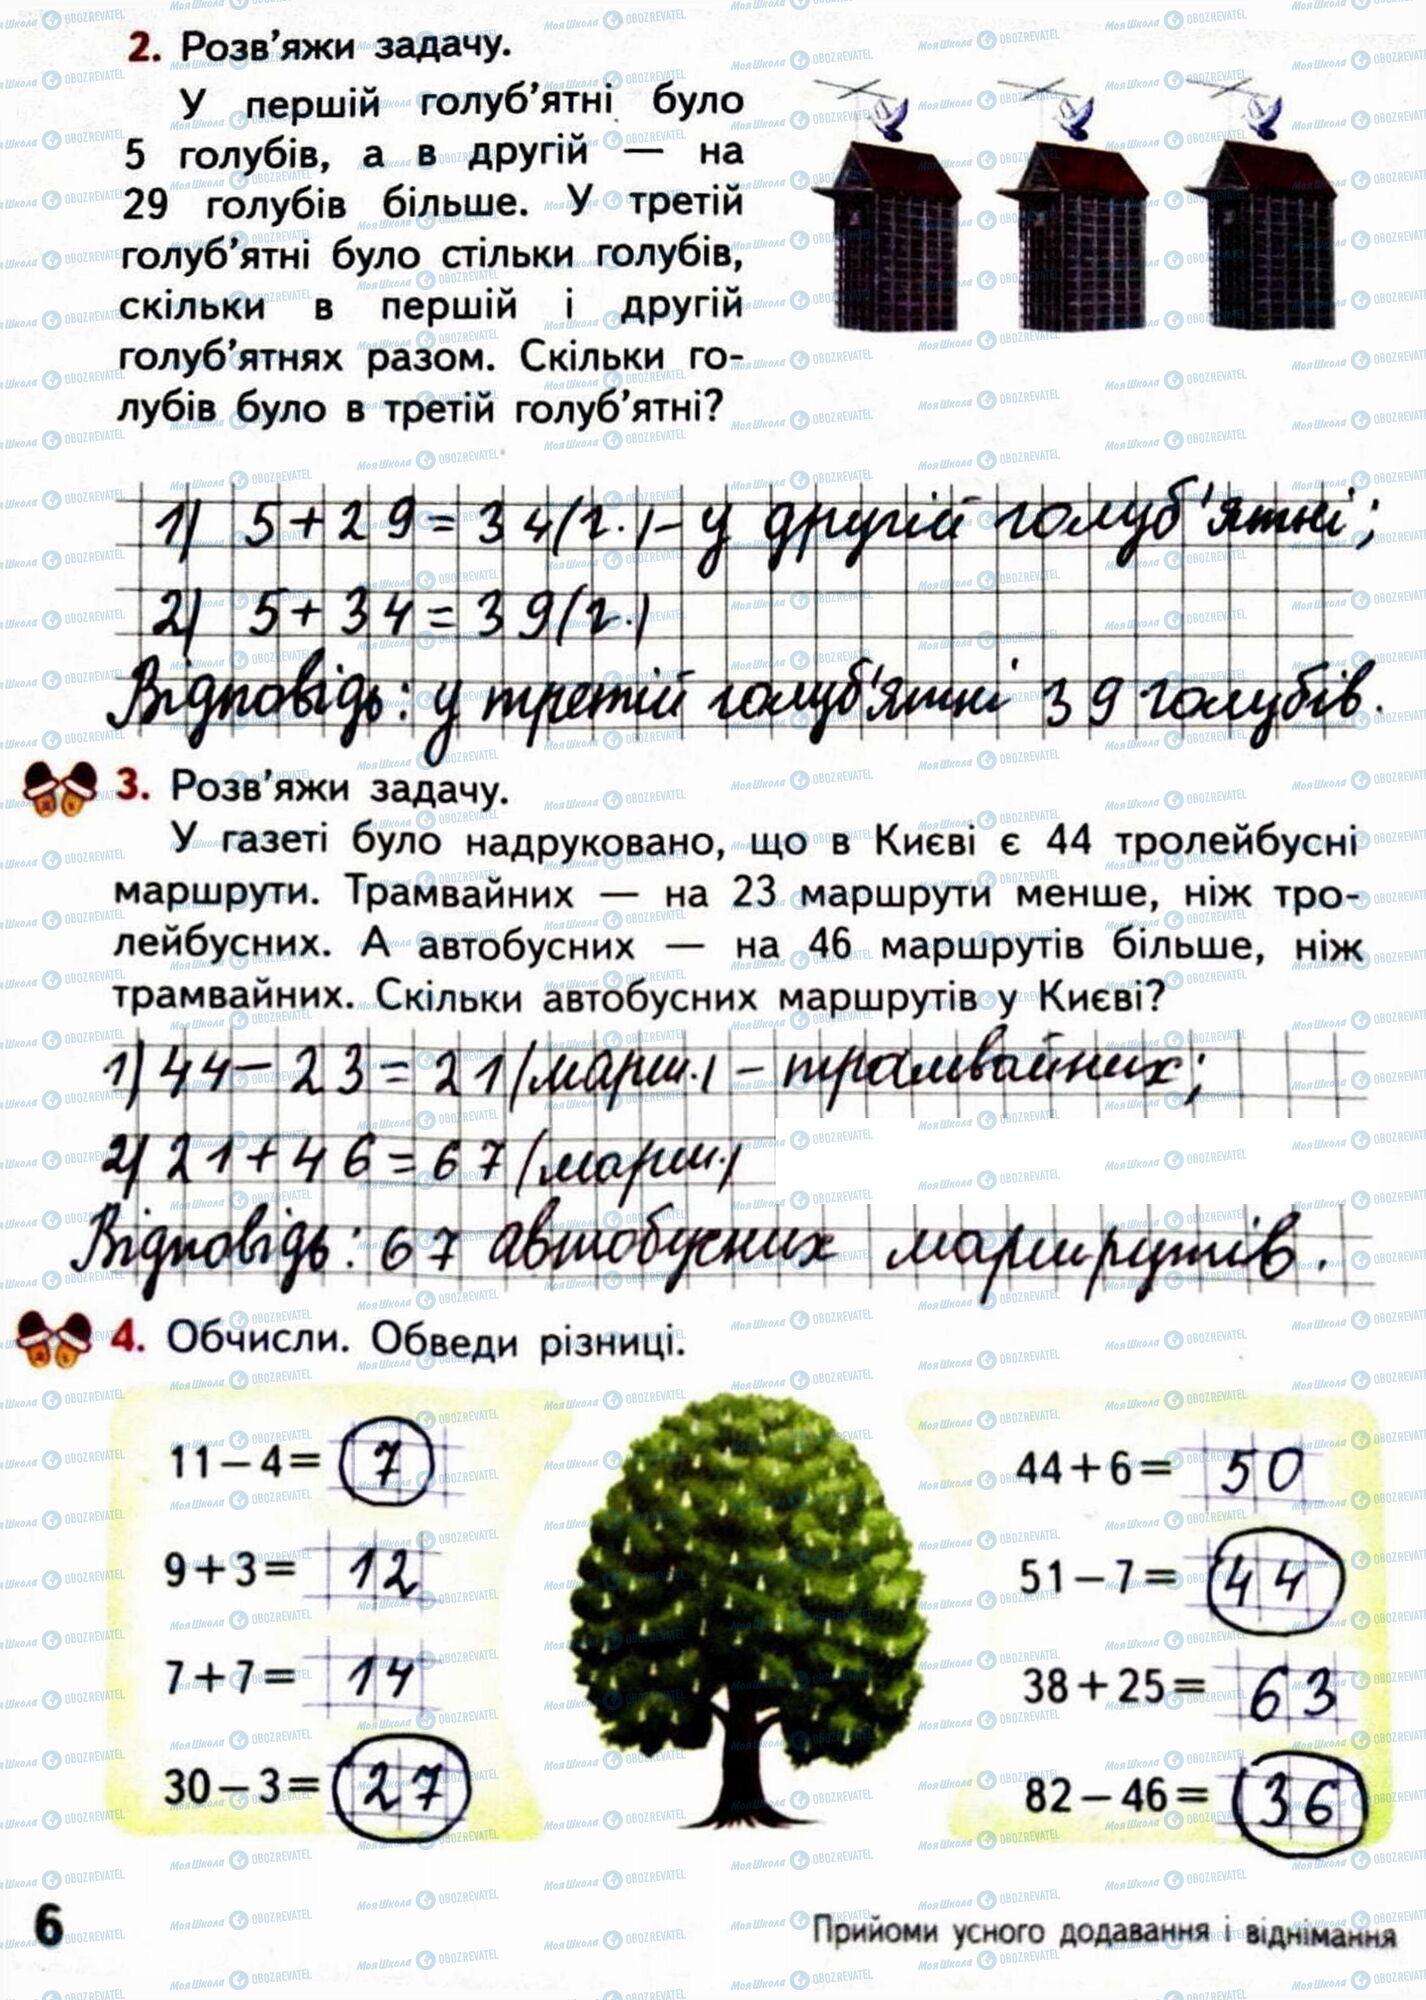 2. Розв'яжи задачу.
У першій голуб'ятні було
5 голубів, а в другій — на
29 голубів більше. У третій
голуб'ятні було стільки голубів,
скільки в першій і другій
голуб'ятнях разом. Скільки го-
лубів було в третій голуб'ятні?
1) 5+29=34(г.)-у другій голуб'ятні;
2) 5+34=39(г.)
Відповідь: у третій голуб'ятні 39 голубів.
3. Розв'яжи задачу.
У газеті було надруковано, що в Києві є 44 тролейбусні
маршрути. Трамвайних — на 23 маршрути менше, ніж тро-
лейбусних. А автобусних — на 46 маршрутів більше, ніж
трамвайних. Скільки автобусних маршрутів у Києві?
1) 44-23=21(марш.) - трамвайних;
2) 21+46=67(марш.)
Відповідь: 67 автобусних маршрутів.
4. Обчисли. Обведи різниці.
11-4= 7
9+3= 12
7+7= 14
30-3= 27
44+6= 50
51-7= 44
38+25= 63
82-46= 36
6
Прийоми усного додавання і віднімання
МояШкола OBOZREVATEL